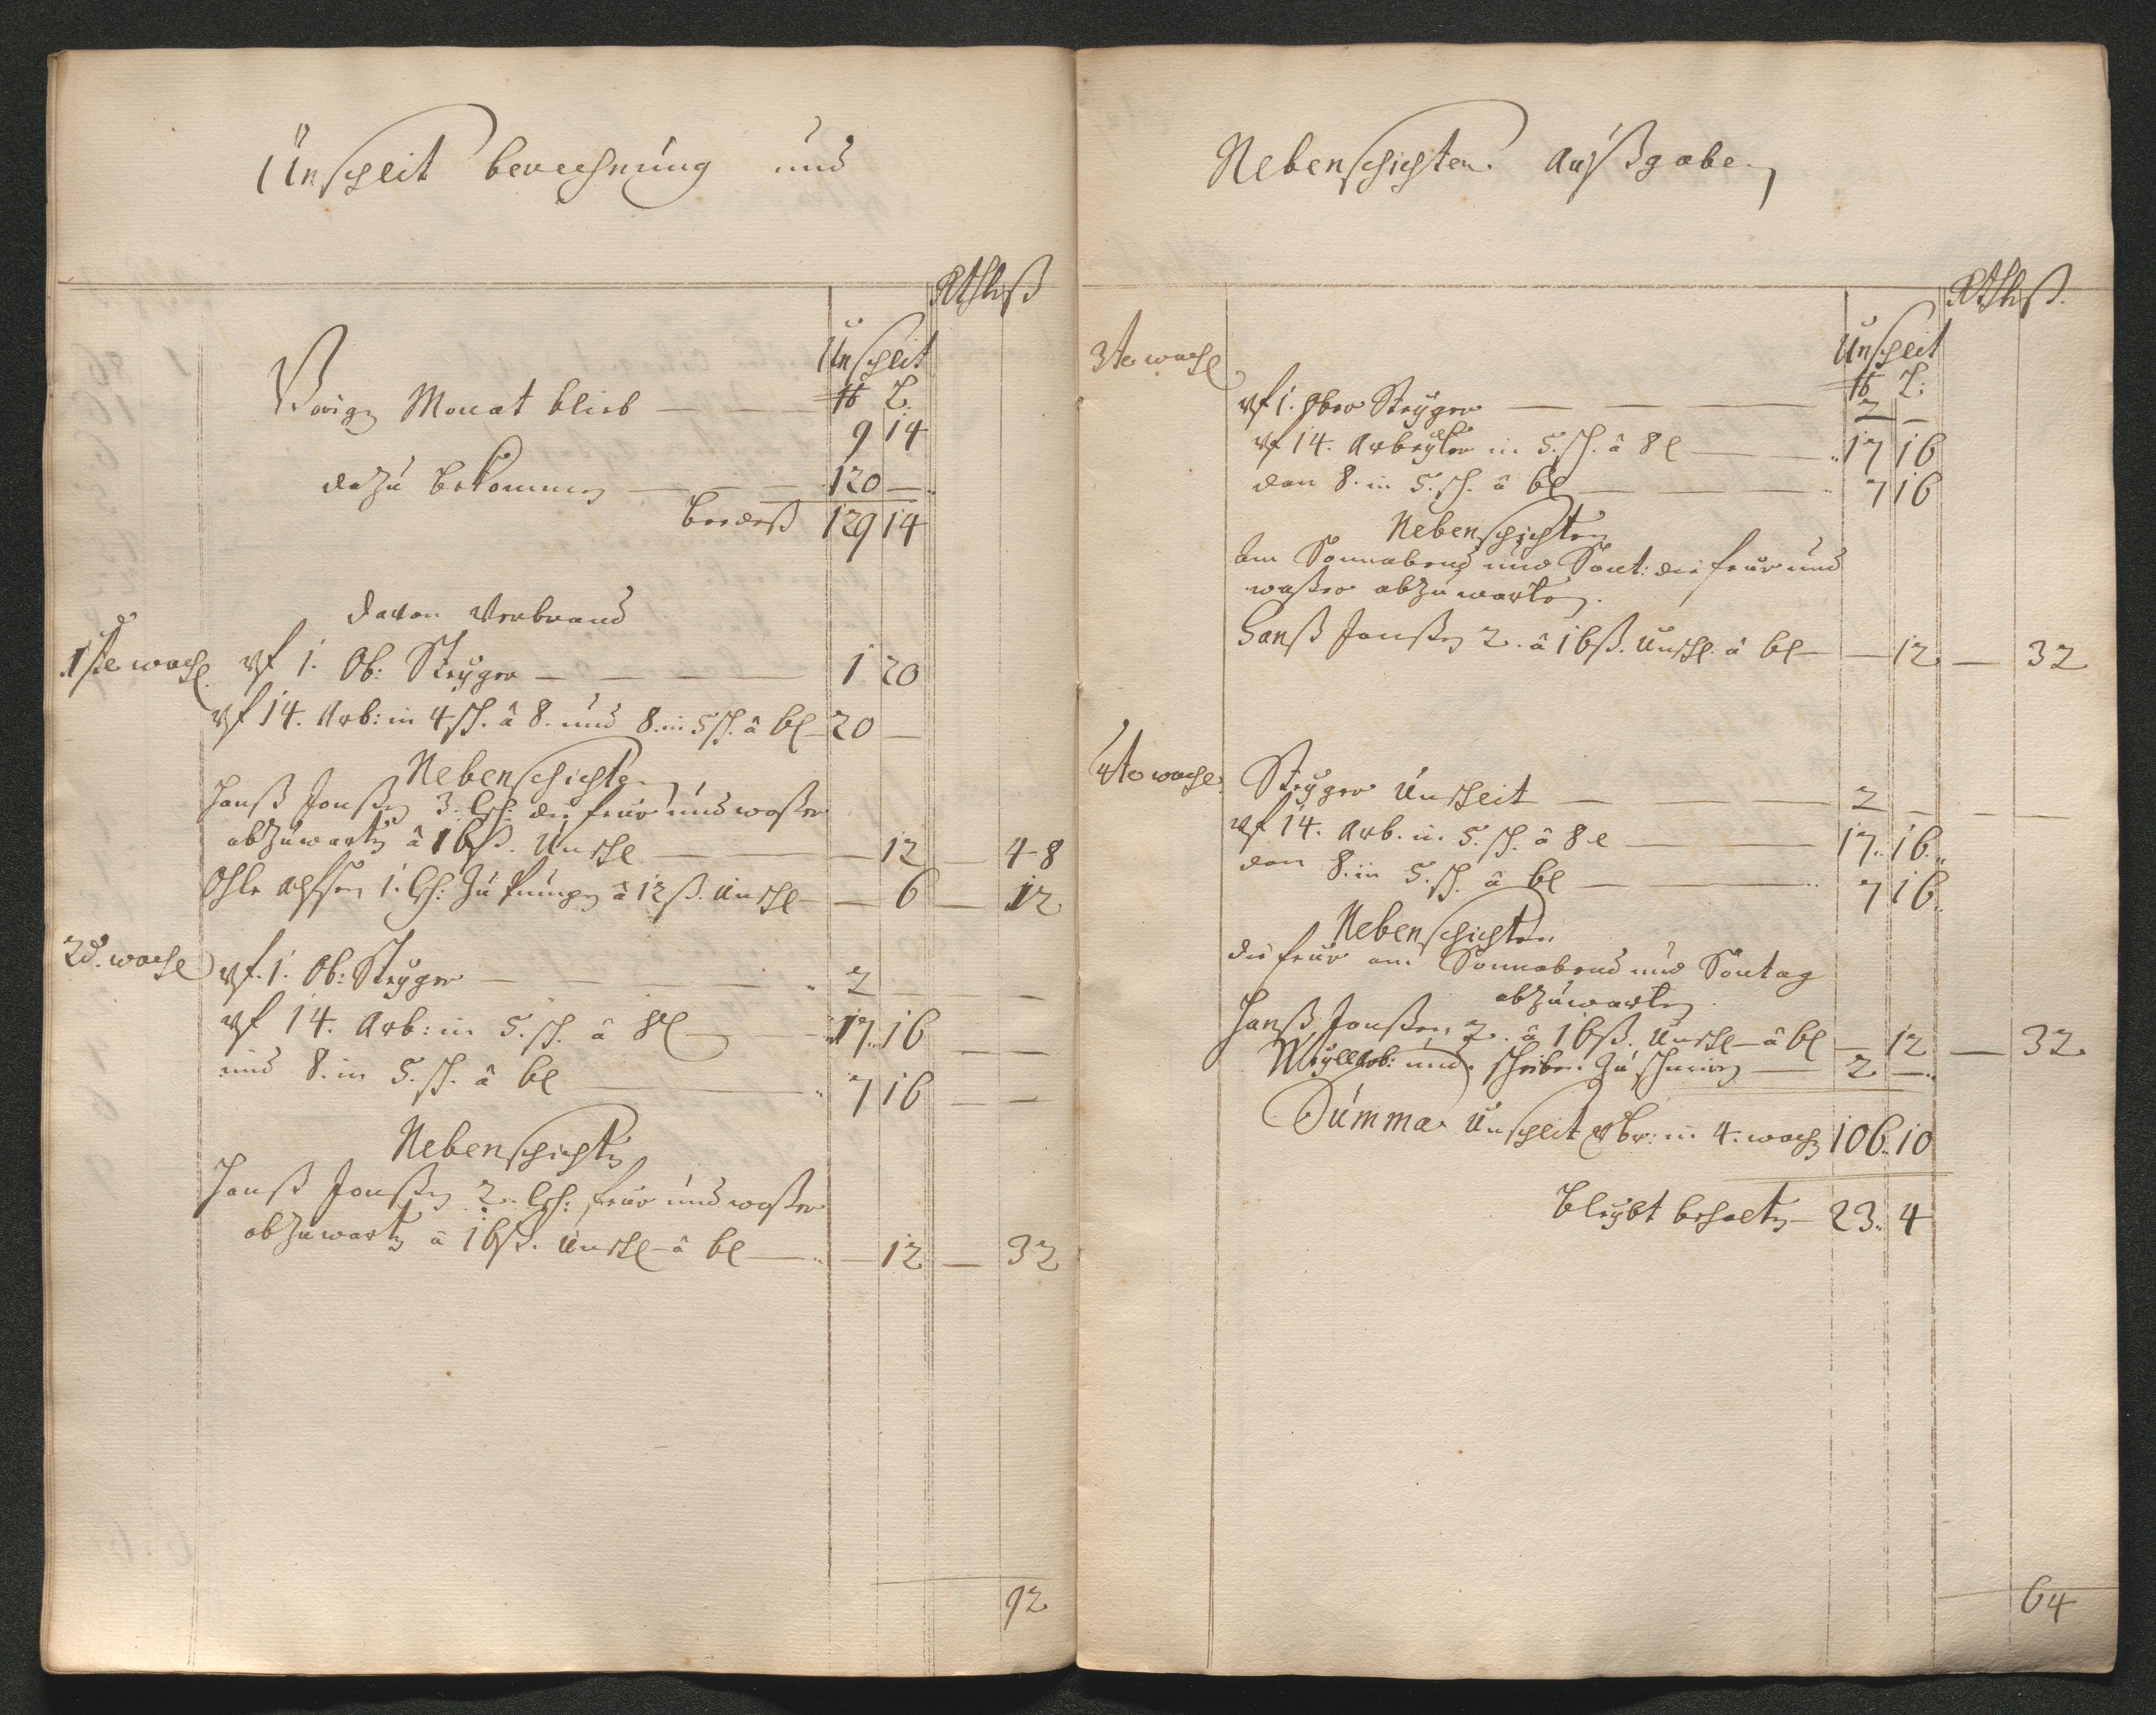 Ünscheit berechnung und
Rthl ß
Ünscheit
Vorign Monat blieb — — ℔ L.
9 14
dazu bekommen — — 120 —
beedeß 129 14
davon Verbrand
1ste woche
vf 1. Ob: Steyger — — — 1 20
vf 14. Arb: in 4 sch. â 8. und 8. in 5 sch. â 6 l — 20 —
Nebenschichten
Hanß Jonßen 3. sch: die feur und waßer
abzuwarten â 16 ß. Unschl — — 12 — 48
Ohle 1. sch: zu Pumpen â 12 ß. Unschl — — 6 — 12
2d. woche
vf. 1. Ob: Steyger — — — 2 — —
vf 14. Arb: in 5. sch. â 8 l — 17 16 — —
und 8. in 5. sch. â 6 l — 7 16 — —
Nebenschichten
Hanß Jonßen 2. sch: feur und waßer
abzuwarten â 16 ß. Unschl — â 6 l — — 12 — 32
92
Nebenschichten Außgabe
Rthl ß.
Ünscheit
℔ L:
3te woche
vf 1. Ober Steyger — — — 2 —
vf 14. Arbeyter in 5. sch. â 8 l — — 17 16
den 8. in 5. sch. â 6 l — — — 7 16
Nebenschichten
Am Sonnabend und Sont: die feur und
waßer abzuwarten.
Hanß Jonßen 2. â 16 ß. Unschl. â 6 l — — 12 — 32
4te woche
Steyger Unscheit — — — 2 — — —
vf 14. Arb. in 5. sch. â 8 l — — 17. 16.
den 8. in 5. sch. â 6 l — — 7 16
Nebenschichten
die feur am Sonnabend und Sontag
abzuwarten.
Hanß Jonßen 2. â 16 ß. Unschl — â 6 l — 12 — 32
und scheiben zu schmiren — 2 —
Summa Unscheit Vbr: in 4. wochen 106. 10
bleybt behalten — 23. 4
64